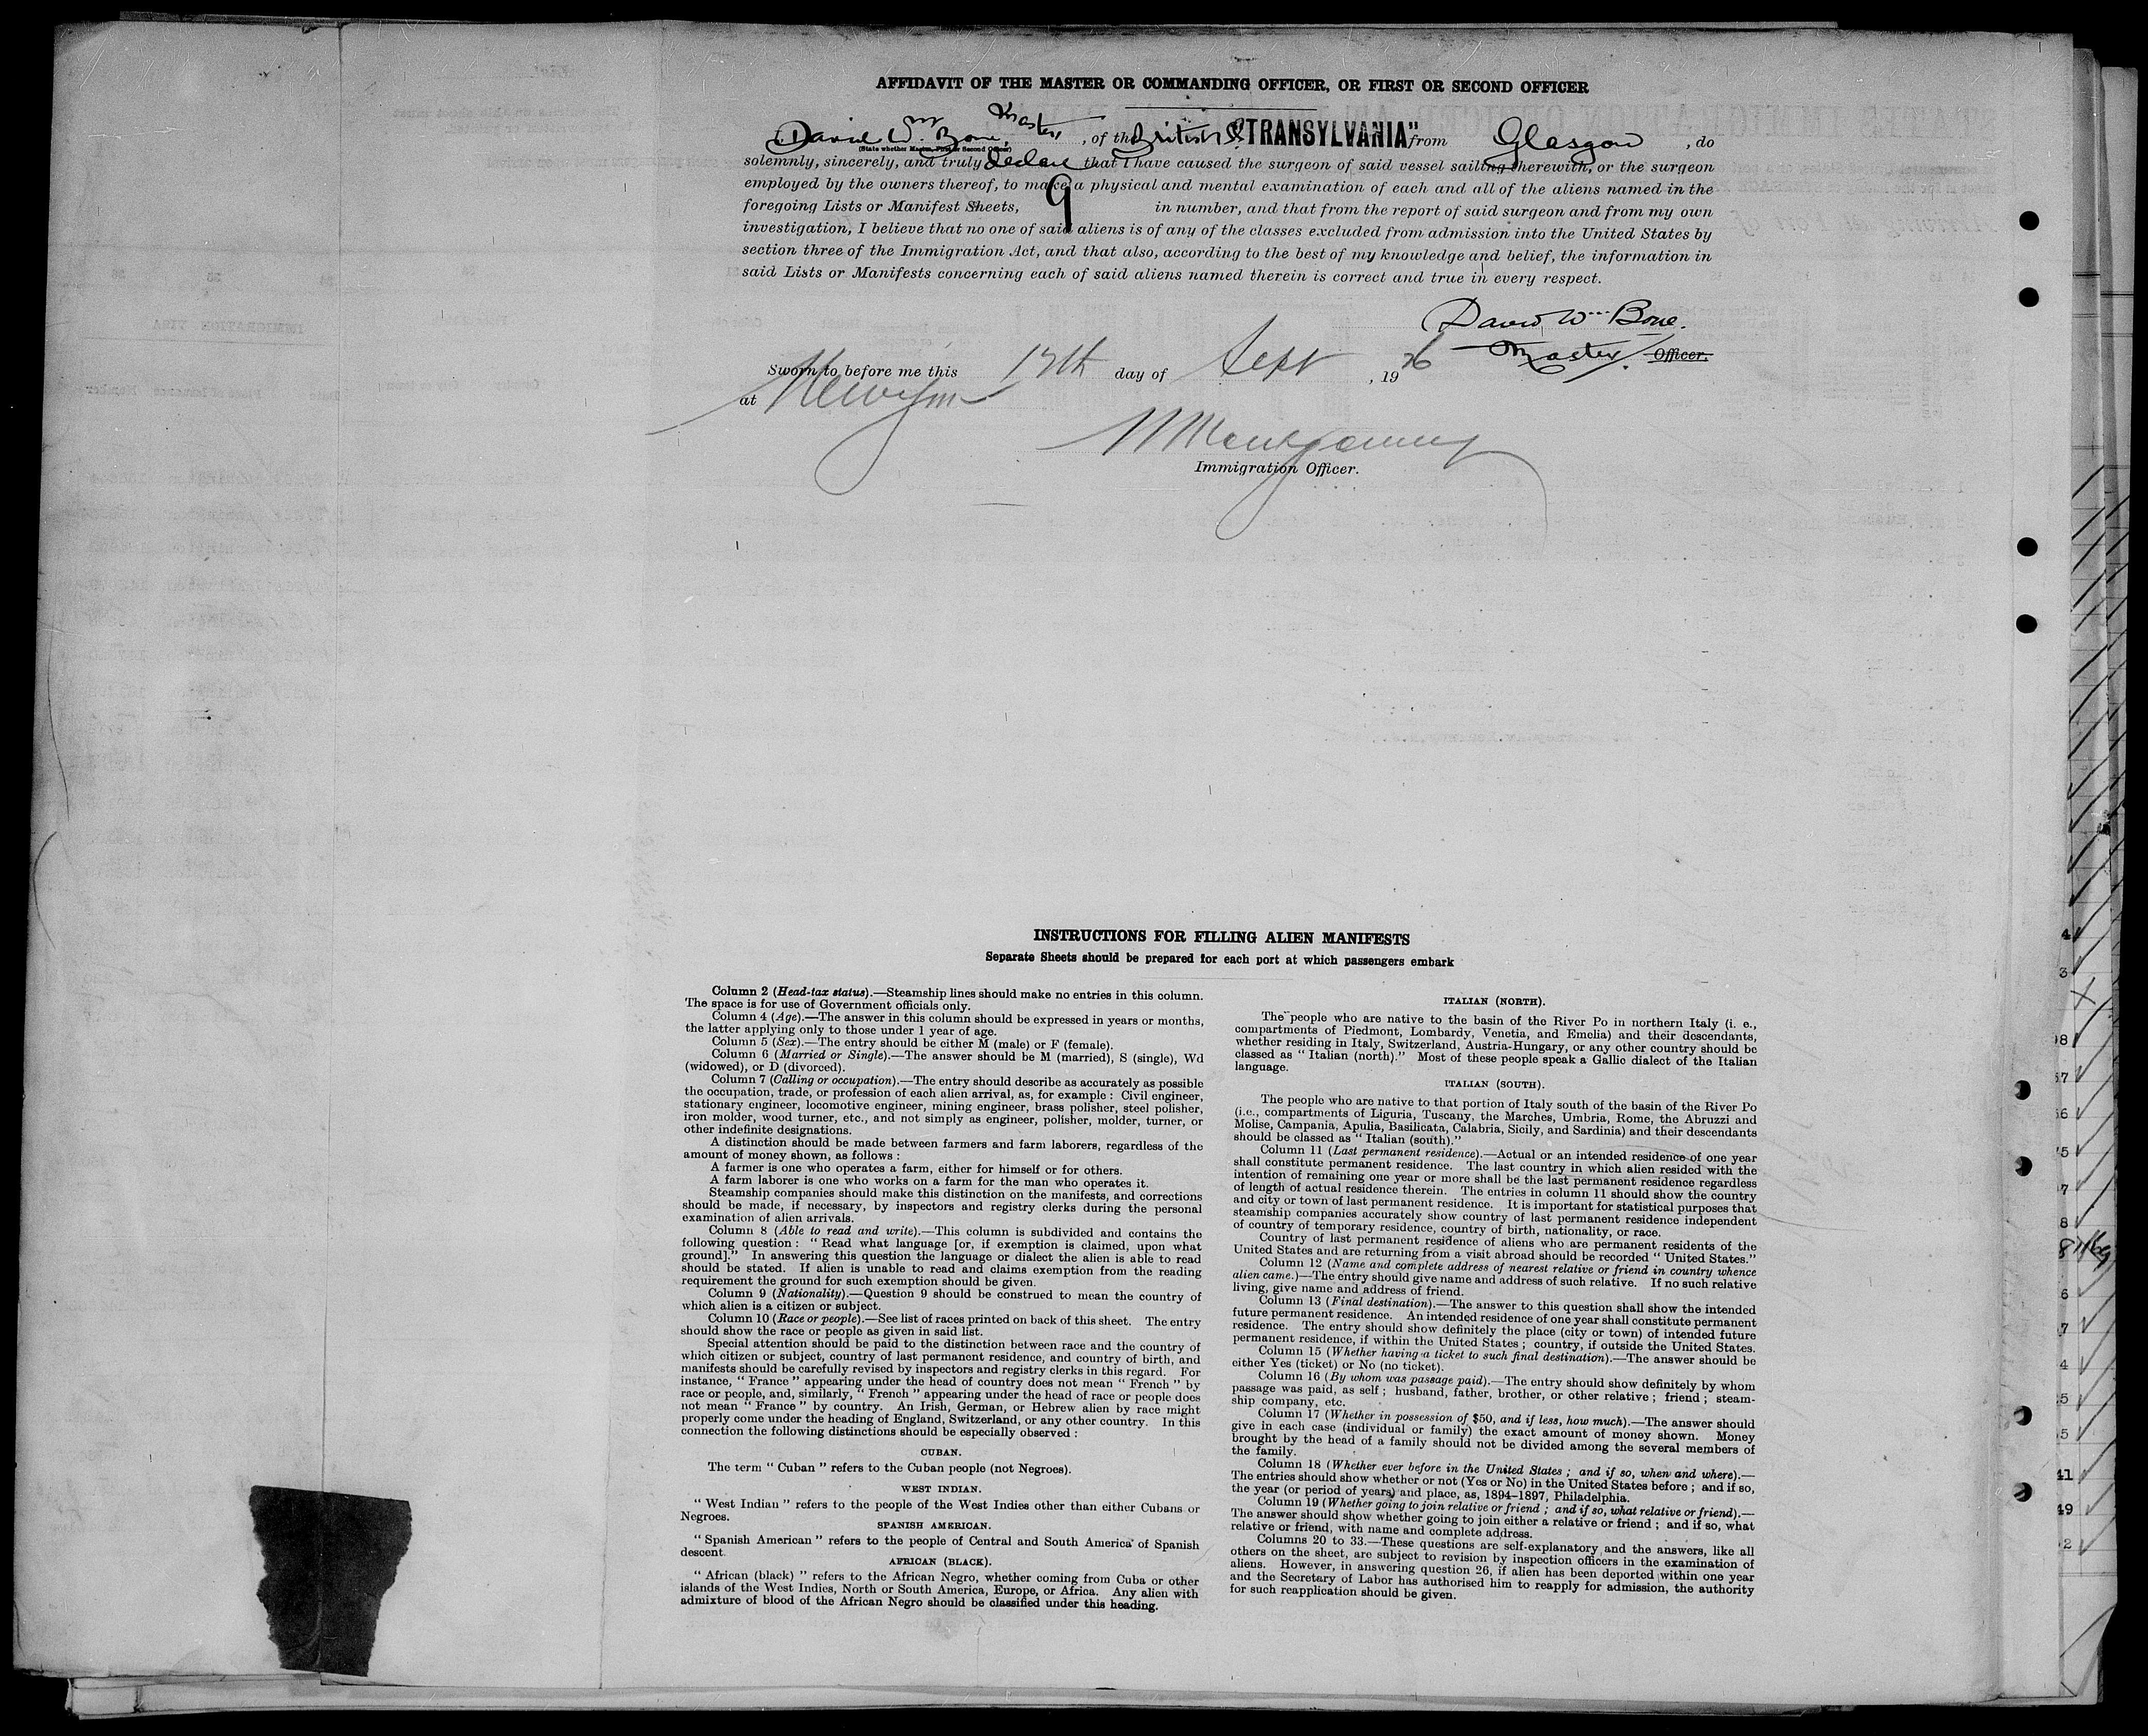 AFFIDAVIT OF THE MASTER OR COMMANDING OFFICER, OR FIRST OR SECOND OFFICER
I, David Wm Bone, Master, of the British S. "TRANSYLVANIA" from Glasgow, do
(State whether Master, First or Second Officer)
solemnly, sincerely, and truly declare that I have caused the surgeon of said vessel sailing therewith, or the surgeon
employed by the owners thereof, to make a physical and mental examination of each and all of the aliens named in the
foregoing Lists or Manifest Sheets, 9 in number, and that from the report of said surgeon and from my own
investigation, I believe that no one of said aliens is of any of the classes excluded from admission into the United States by
section three of the Immigration Act, and that also, according to the best of my knowledge and belief, the information in
said Lists or Manifests concerning each of said aliens named therein is correct and true in every respect.
David Wm Bone.
Master. Officer.
Sworn to before me this day of Sept, 1926
at
Montgomery
Immigration Officer.
INSTRUCTIONS FOR FILLING ALIEN MANIFESTS
Separate Sheets should be prepared for each port at which passengers embark
Column 2 (Head-tax status).—Steamship lines should make no entries in this column.
The space is for use of Government officials only.
Column 4 (Age).—The answer in this column should be expressed in years or months,
the latter applying only to those under 1 year of age.
Column 5 (Sex).—The entry should be either M (male) or F (female).
Column 6 (Married or Single).—The answer should be M (married), S (single), Wd
(widowed), or D (divorced).
Column 7 (Calling or occupation).—The entry should describe as accurately as possible
the occupation, trade, or profession of each alien arrival, as, for example : Civil engineer,
stationary engineer, locomotive engineer, mining engineer, brass polisher, steel polisher,
iron molder, wood turner, etc., and not simply as engineer, polisher, molder, turner, or
other indefinite designations.
A distinction should be made between farmers and farm laborers, regardless of the
amount of money shown, as follows :
A farmer is one who operates a farm, either for himself or for others.
A farm laborer is one who works on a farm for the man who operates it.
Steamship companies should make this distinction on the manifests, and corrections
should be made, if necessary, by inspectors and registry clerks during the personal
examination of alien arrivals.
Column 8 (Able to read and write).—This column is subdivided and contains the
following question : " Read what language [or, if exemption is claimed, upon what
ground]." In answering this question the language or dialect the alien is able to read
should be stated. If alien is unable to read and claims exemption from the reading
requirement the ground for such exemption should be given.
Column 9 (Nationality).—Question 9 should be construed to mean the country of
which alien is a citizen or subject.
Column 10 (Race or people).—See list of races printed on back of this sheet. The entry
should show the race or people as given in said list.
Special attention should be paid to the distinction between race and the country of
which citizen or subject, country of last permanent residence, and country of birth, and
manifests should be carefully revised by inspectors and registry clerks in this regard. For
instance, " France " appearing under the head of country does not mean " French " by
race or people, and, similarly, " French " appearing under the head of race or people does
not mean " France " by country. An Irish, German, or Hebrew alien by race might
properly come under the heading of England, Switzerland, or any other country. In this
connection the following distinctions should be especially observed :
CUBAN.
The term " Cuban " refers to the Cuban people (not Negroes).
WEST INDIAN.
" West Indian " refers to the people of the West Indies other than either Cubans or
Negroes.
SPANISH AMERICAN.
" Spanish American " refers to the people of Central and South America of Spanish
descent.
AFRICAN (BLACK).
" African (black) " refers to the African Negro, whether coming from Cuba or other
islands of the West Indies, North or South America, Europe, or Africa. Any alien with
admixture of blood of the African Negro should be classified under this heading.
ITALIAN (NORTH).
The people who are native to the basin of the River Po in northern Italy (i. e.,
compartments of Piedmont, Lombardy, Venetia, and Emelia) and their descendants,
whether residing in Italy, Switzerland, Austria-Hungary, or any other country should be
classed as " Italian (north)." Most of these people speak a Gallic dialect of the Italian
language.
ITALIAN (SOUTH).
The people who are native to that portion of Italy south of the basin of the River Po
(i.e., compartments of Liguria, Tuscany, the Marches, Umbria, Rome, the Abruzzi and
Molise, Campania, Apulia, Basilicata, Calabria, Sicily, and Sardinia) and their descendants
should be classed as " Italian (south)."
Column 11 (Last permanent residence).—Actual or an intended residence of one year
shall constitute permanent residence. The last country in which alien resided with the
intention of remaining one year or more shall be the last permanent residence regardless
of length of actual residence therein. The entries in column 11 should show the country
and city or town of last permanent residence. It is important for statistical purposes that
steamship companies accurately show country of last permanent residence independent
of country of temporary residence, country of birth, nationality, or race.
Country of last permanent residence of aliens who are permanent residents of the
United States and are returning from a visit abroad should be recorded " United States."
Column 12 (Name and complete address of nearest relative or friend in country whence
alien came.)—The entry should give name and address of such relative. If no such relative
living, give name and address of friend.
Column 13 (Final destination).—The answer to this question shall show the intended
future permanent residence. An intended residence of one year shall constitute permanent
residence. The entry should show definitely the place (city or town) of intended future
permanent residence, if within the United States ; country, if outside the United States.
Column 15 (Whether having a ticket to such final destination).—The answer should be
either Yes (ticket) or No (no ticket).
Column 16 (By whom was passage paid).—The entry should show definitely by whom
passage was paid, as self ; husband, father, brother, or other relative ; friend ; steam-
ship company, etc.
Column 17 (Whether in possession of $50, and if less, how much).—The answer should
give in each case (individual or family) the exact amount of money shown. Money
brought by the head of a family should not be divided among the several members of
the family.
Column 18 (Whether ever before in the United States ; and if so, when and where).—
The entries should show whether or not (Yes or No) in the United States before ; and if so,
the year (or period of years) and place, as, 1894-1897, Philadelphia.
Column 19 (Whether going to join relative or friend ; and if so, what relative or friend).—
The answer should show whether going to join either a relative or friend ; and if so, what
relative or friend, with name and complete address.
Columns 20 to 33.—These questions are self-explanatory and the answers, like all
others on the sheet, are subject to revision by inspection officers in the examination of
aliens. However, in answering question 26, if alien has been deported within one year
and the Secretary of Labor has authorised him to reapply for admission, the authority
for such reapplication should be given.